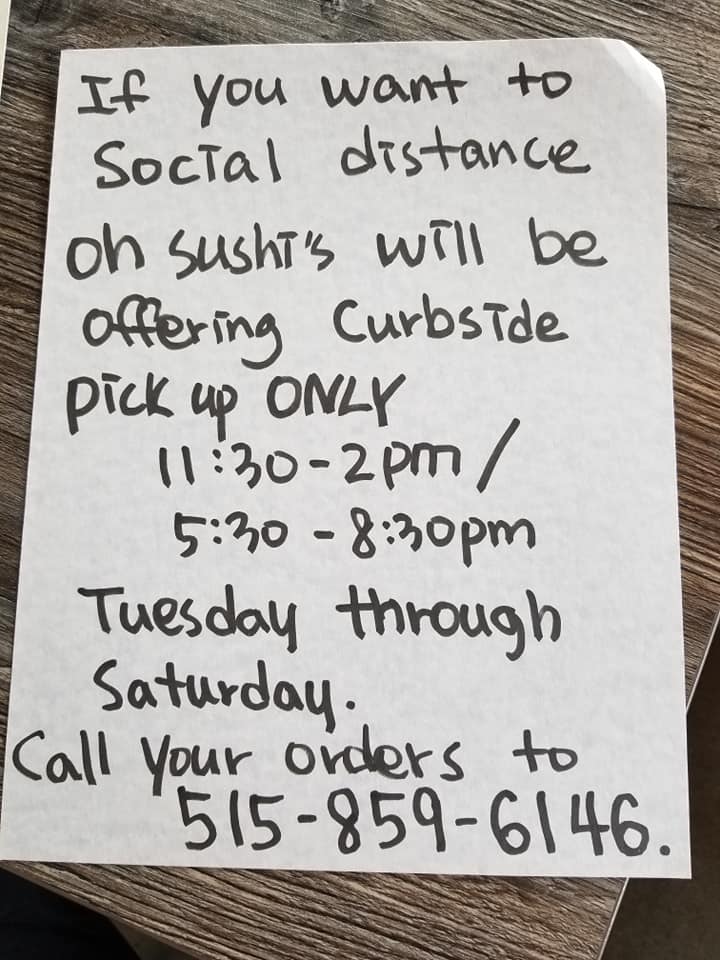 If you want to
Social distance
oh sushi's will be
offering Curbside
pick up ONLY
11:30-2pm /
5:30 - 8:30pm
Tuesday through
Saturday.
Call your orders to
515-859-6146.